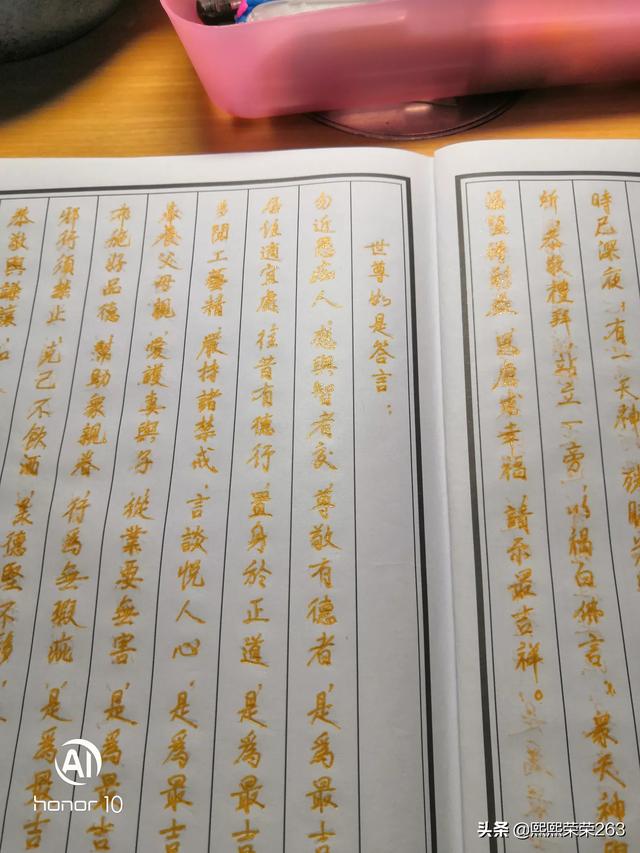 時已深夜 有一天神
所 恭敬禮拜 站立一旁 以偈白佛言 眾天神與
思慮求幸福 請示最吉祥。
世尊如是答言：
勿近愚痴人 應與智者交 尊敬有德者 是為最吉
居住適宜處 往昔有德行 置身於正道 是為最吉
多聞工藝精 嚴持諸禁戒 言談悅人心 是為最吉
奉養父母親 愛護妻與子 從業要無害 是為最吉
布施好品德 幫助眾親眷 行為無瑕疵 是為最吉
邪行須禁止 克己不飲酒 美德堅不移 是
恭敬與謙讓
AI
honor 10
头条 @熙熙荣荣263